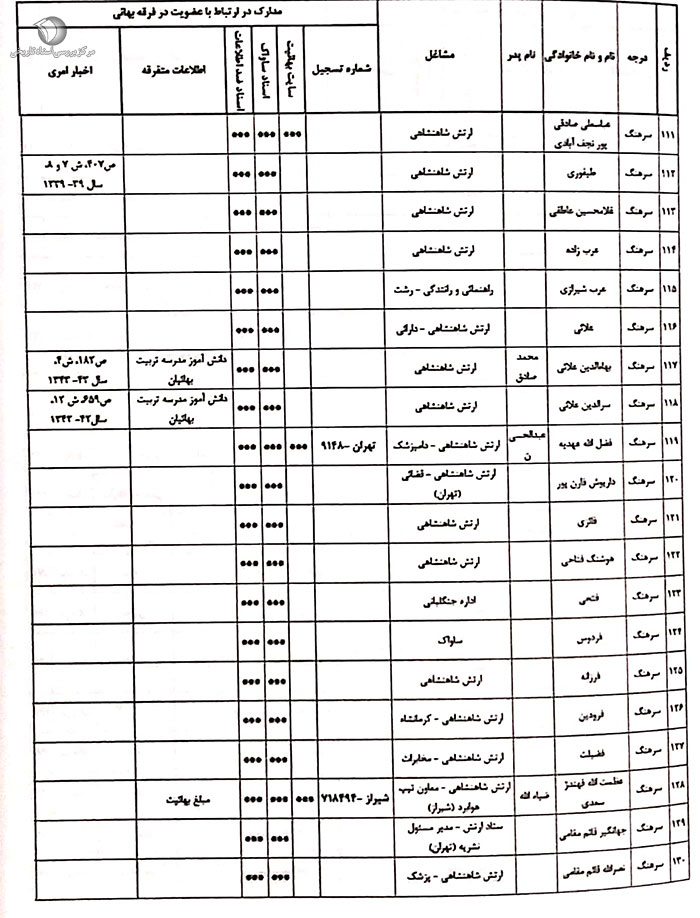 مدارک در ارتباط با عضویت در فرقه بهائی
مرکز بررسی اسناد تاریخی
ردیف درجه نام و نام خانوادگی نام پدر مشاغل شماره تسجیل سایت بهائیت اسناد ساواک اسناد ضد اطلاعات اطلاعات متفرقه اخبار امری
۱۱۱ سرهنگ عباسعلی صادقی پور نجف آبادی ارتش شاهنشاهی ●●● ●●● ●●●
۱۱۲ سرهنگ طیفوری ارتش شاهنشاهی ●●● ●●● ص۴۰۷، ش ۷ و ۸، سال ۳۹- ۱۳۳۹
۱۱۳ سرهنگ غلامحسین عاطفی ارتش شاهنشاهی ●●● ●●●
۱۱۴ سرهنگ عرب زاده ارتش شاهنشاهی ●●● ●●●
۱۱۵ سرهنگ عرب شیرازی راهنمائی و رانندگی - رشت ●●● ●●●
۱۱۶ سرهنگ علائی ارتش شاهنشاهی - دارائی ●●● ●●●
۱۱۷ سرهنگ بهاءالدین علائی محمد صادق ارتش شاهنشاهی ●●● ●●● دانش آموز مدرسه تربیت بهائیان ص۱۸۲، ش۴، سال ۴۳- ۱۳۴۳
۱۱۸ سرهنگ سرالدین علائی ارتش شاهنشاهی ●●● ●●● دانش آموز مدرسه تربیت بهائیان ص۶۵۹، ش ۱۲، سال۴۲- ۱۳۴۲
۱۱۹ سرهنگ فضل الله عهدیه عبدالحسین ارتش شاهنشاهی - دامپزشک تهران -۹۱۴۸ ●●● ●●● ●●●
۱۲۰ سرهنگ داریوش فارن پور ارتش شاهنشاهی - قضائی (تهران) ●●● ●●●
۱۲۱ سرهنگ فائزی ارتش شاهنشاهی ●●● ●●●
۱۲۲ سرهنگ هوشنگ فتاحی ارتش شاهنشاهی ●●● ●●●
۱۲۳ سرهنگ فتحی اداره جنگلبانی ●●● ●●●
۱۲۴ سرهنگ فردوس ساواک ●●● ●●●
۱۲۵ سرهنگ فرزانه ارتش شاهنشاهی ●●● ●●●
۱۲۶ سرهنگ فرودین ارتش شاهنشاهی - کرمانشاه ●●● ●●●
۱۲۷ سرهنگ فضیلت ارتش شاهنشاهی - مخابرات ●●● ●●●
۱۲۸ سرهنگ عظمت الله فهندژ سعدی ضیاء الله ارتش شاهنشاهی - معاون تیپ هوابرد (شیراز) شیراز -۷۱۸۴۹۴ ●●● ●●● ●●● مبلغ بهائیت
۱۲۹ سرهنگ جهانگیر قائم مقامی ستاد ارتش - مدیر مسئول نشریه (تهران) ●●● ●●●
۱۳۰ سرهنگ نصرالله قائم مقامی ارتش شاهنشاهی - پزشک ●●● ●●●